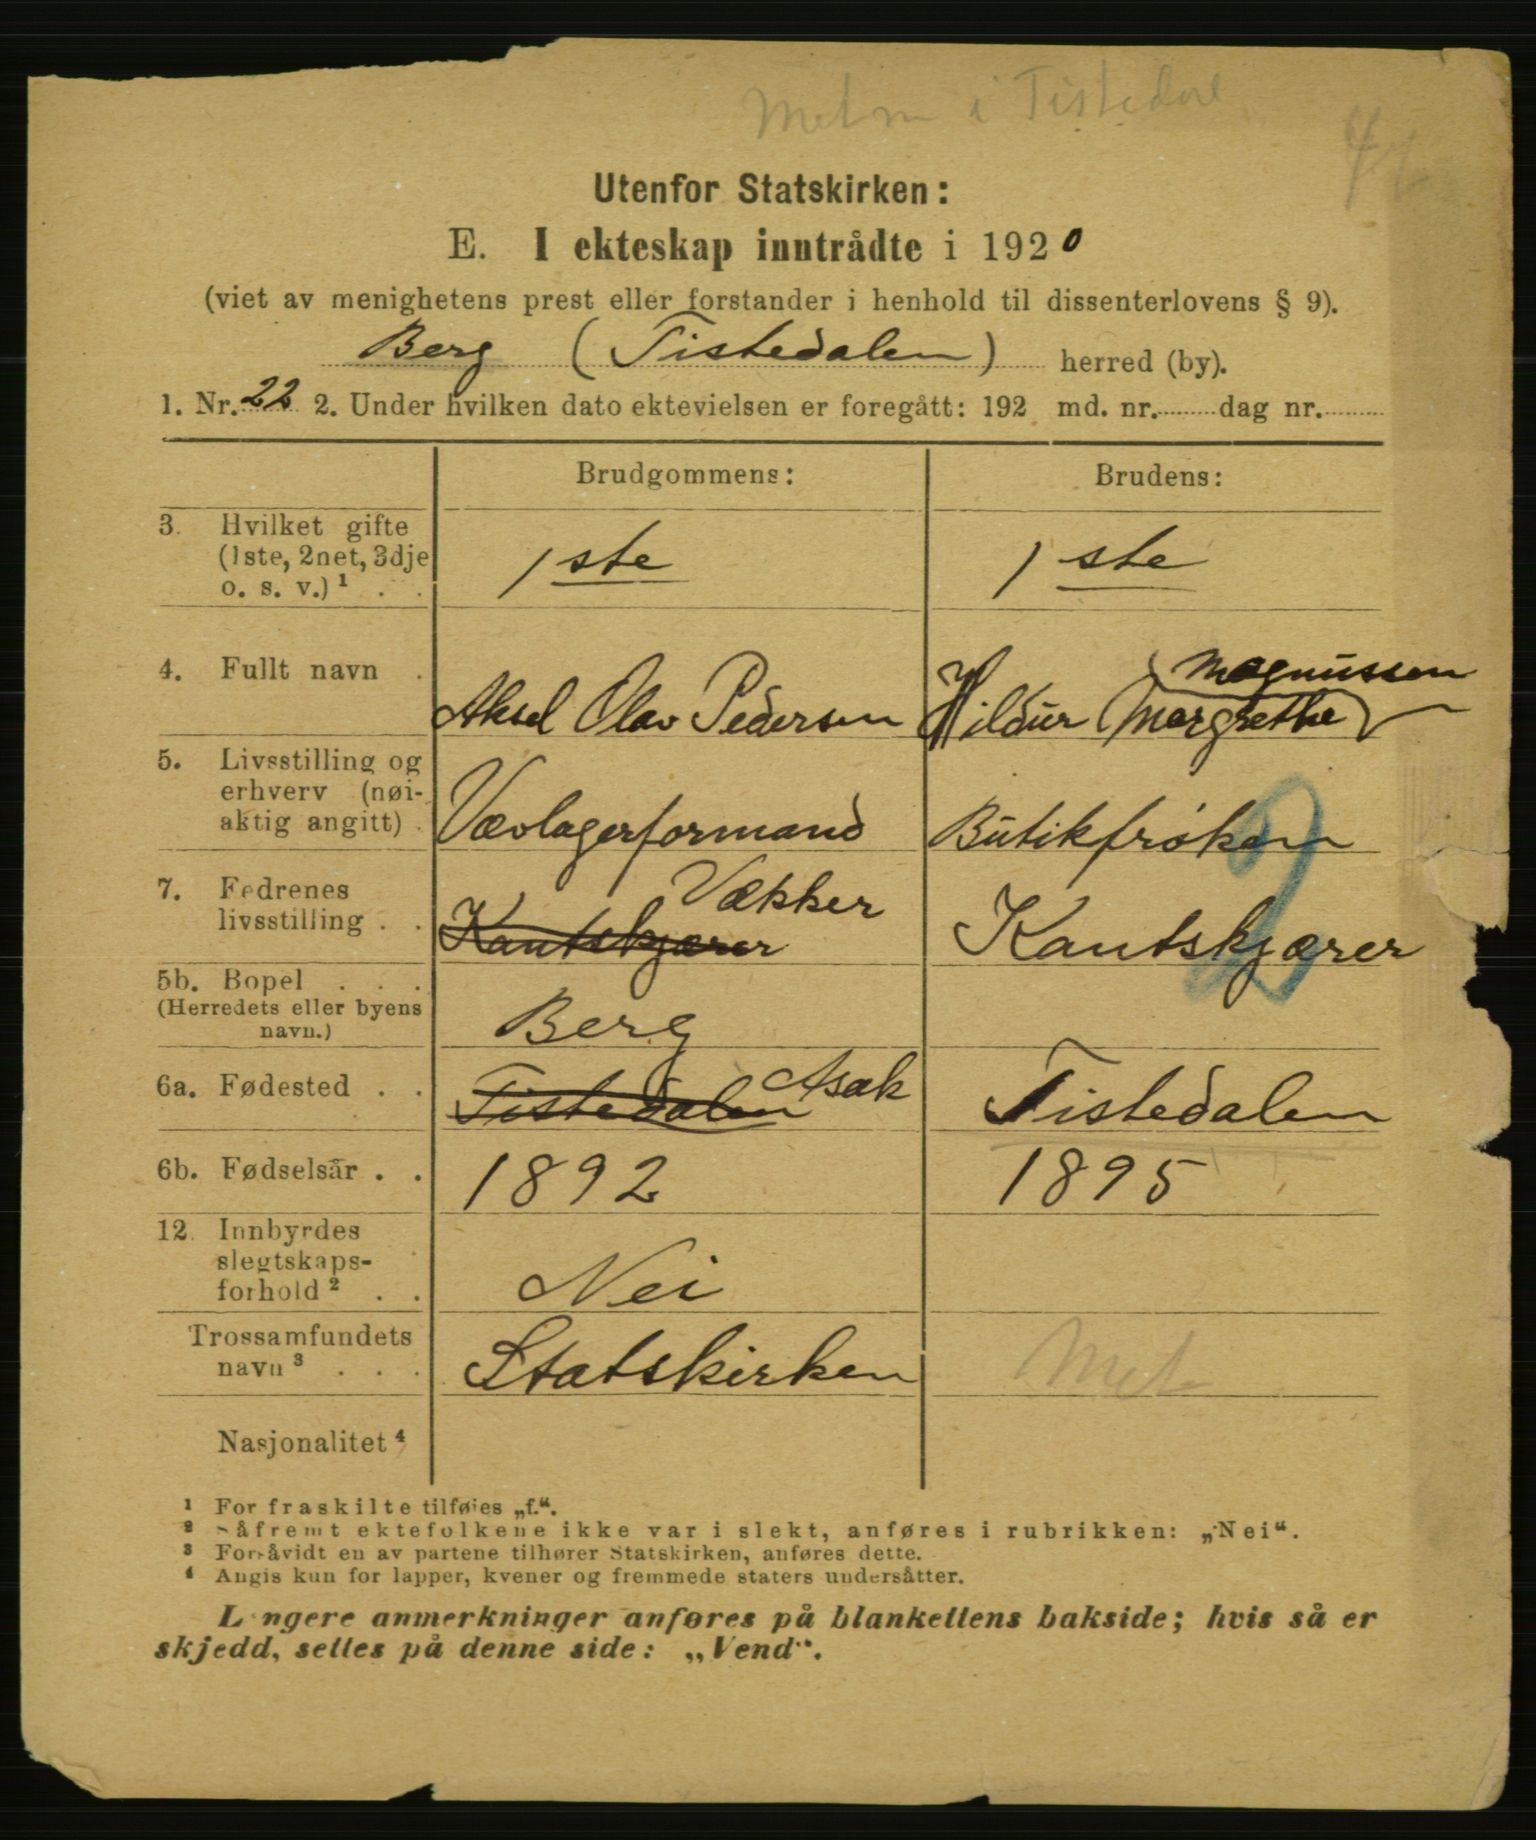 Metm i Tistedal
Utenfor Statskirken:
E. I ekteskap inntrådte i 1920
(viet av menighetens prest eller forstander i henhold til dissenterlovens § 9).
Berg (Tistedalen) herred (by).
1. Nr. 22 2. Under hvilken dato ektevielsen er foregått: 192 md. nr. dag nr.
Brudgommens: Brudens:
3. Hvilket gifte (1ste, 2net, 3dje o. s. v.) 1 . . 1 ste 1 ste
4. Fullt navn . Aksel Olav Pedersen Hildur (Margrethe) Magnussen
5. Livsstilling og erhverv (nøiaktig angitt) . Vævlagerformand Butikfrøken
7. Fedrenes livsstilling . . Kantskjærer Vækker Kantskjærer
5b. Bopel . . . (Herredets eller byens navn.) Berg
6a. Fødested . . Tistedalen Asak Tistedalen
6b. Fødselsår . . 1892 1895
12. Innbyrdes slegtskapsforhold 2 . . Nei
Trossamfundets navn 3 . . . Statskirken Met
Nasjonalitet 4
1 For fraskilte tilføies „f.“.
2 Såfremt ektefolkene ikke var i slekt, anføres i rubrikken: „Nei“.
3 Forsåvidt en av partene tilhører Statskirken, anføres dette.
4 Angis kun for lapper, kvener og fremmede staters undersåtter.
Lengere anmerkninger anføres på blankettens bakside; hvis så er
skjedd, settes på denne side: „Vend“.